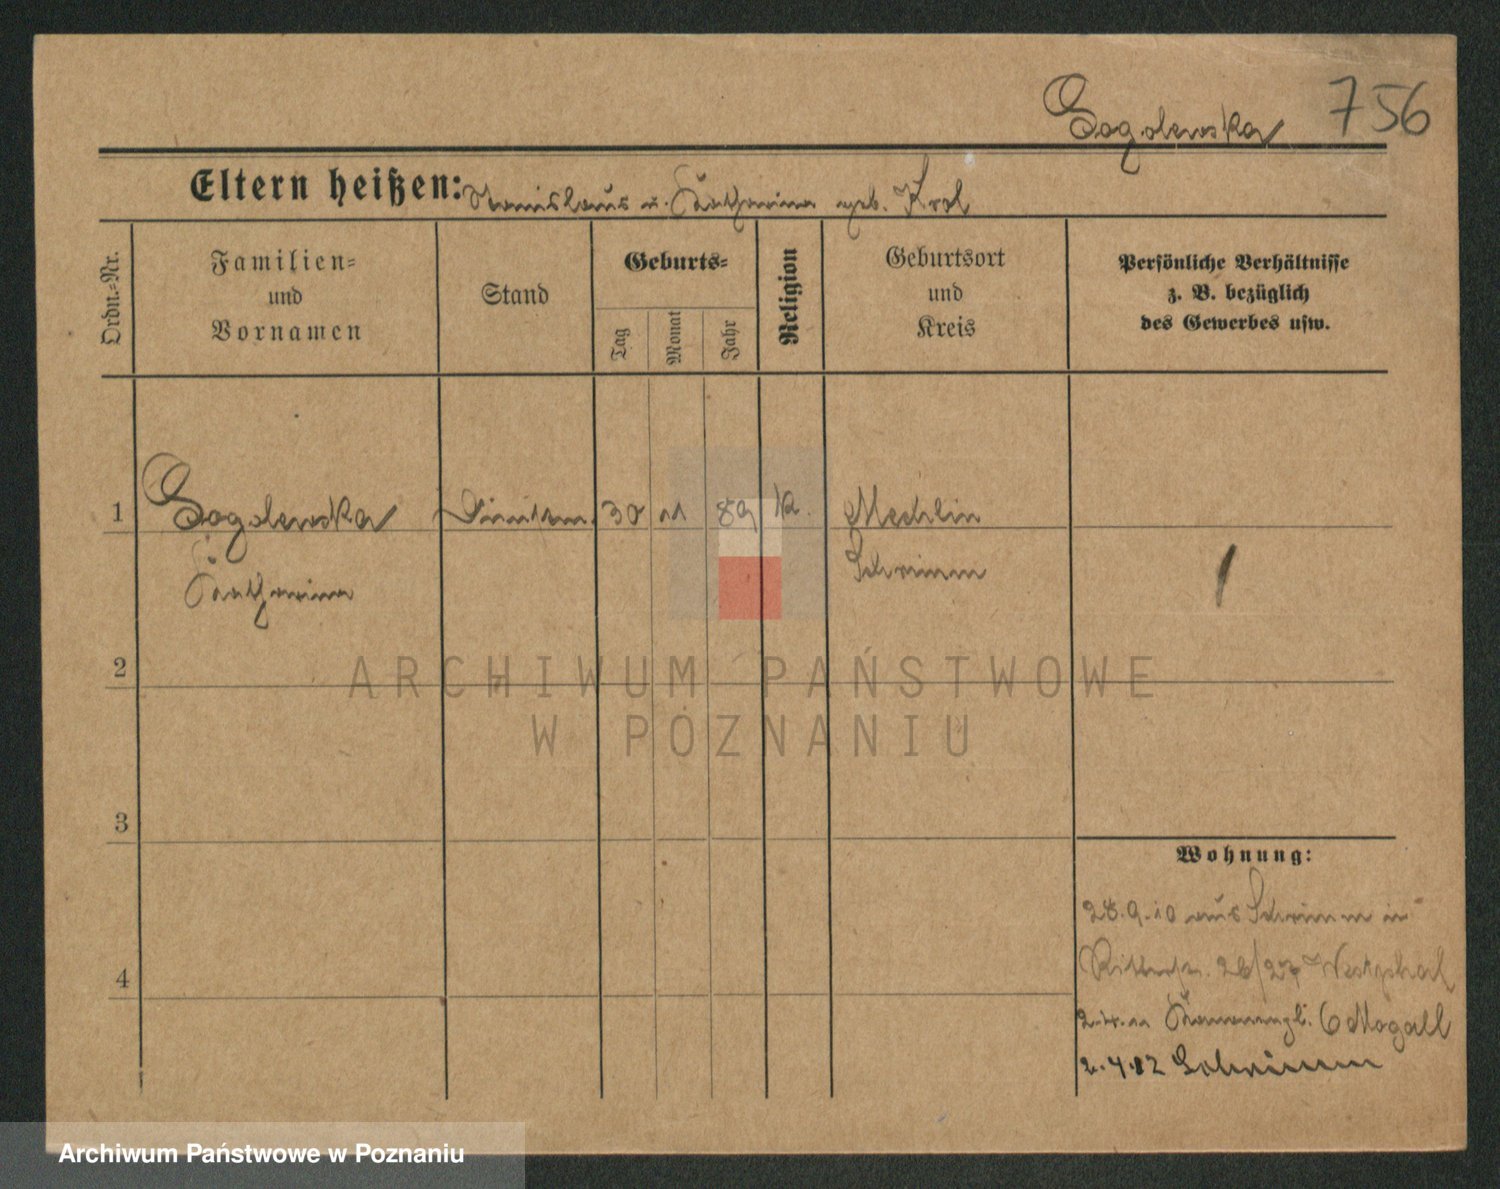 Gogolewska 756
Eltern heißen: Stanislaus u. Katharina geb. Krol
Ordn.=Nr.
Familien=
und
Vornamen
Stand
Geburts=
Tag
Monat
Jahr
Religion
Geburtsort
und
Kreis
Persönliche Verhältnisse
z. B. bezüglich
des Gewerbes usw.
1 Gogolewska 30 11 89 k. Mechlin
Katharina Schrimm
2
3
4
Wohnung:
28.9.10 aus Schrimm in
Ritterstr. 26/27 Westphal
2.4.11 6 Mogall
2.4.12 Schrimm
ARCHIWUM PAŃSTWOWE
W POZNANIU
Archiwum Państwowe w Poznaniu